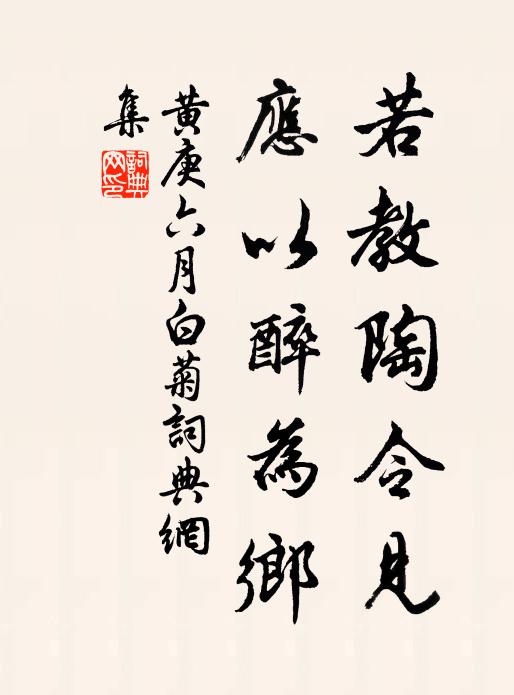 若教陶令見
應以醉為鄉
黃庚六月白菊詞典網
集
詞典
网印